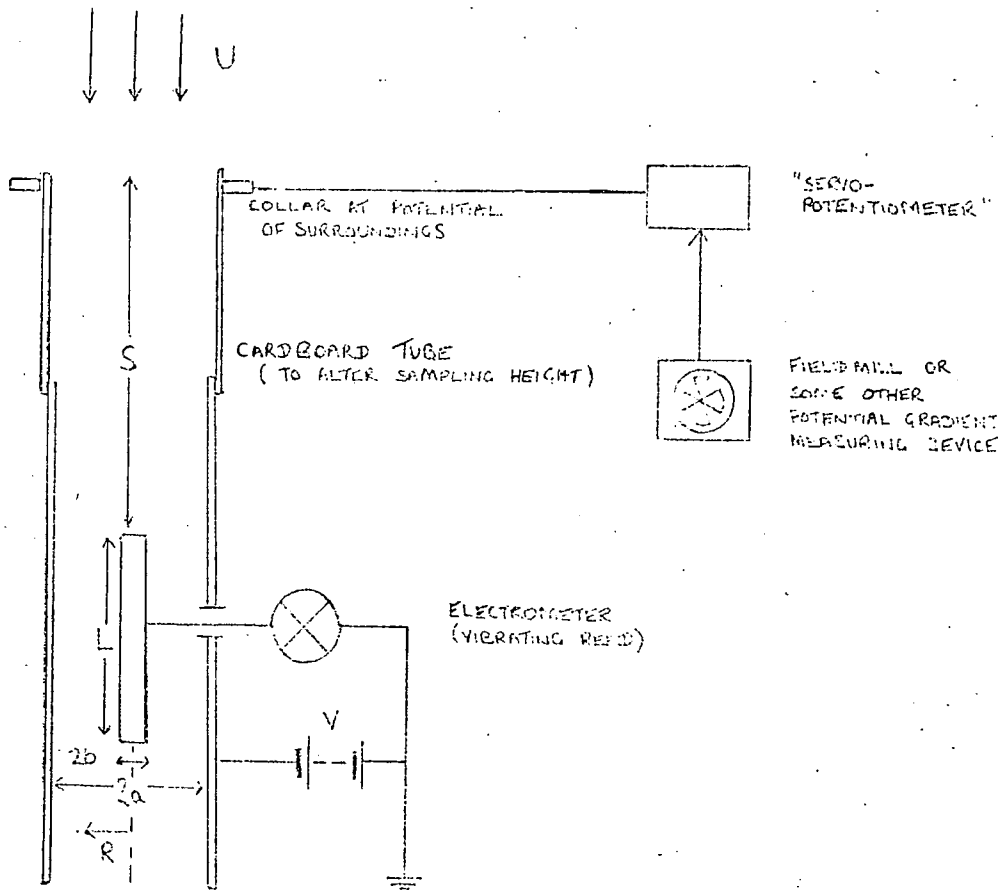 U
COLLAR AT POTENTIAL
OF SURROUNDINGS
"SERVO-
POTENTIOMETER"
S
CARDBOARD TUBE
(TO ALTER SAMPLING HEIGHT)
FIELD MILL OR
SOME OTHER
POTENTIAL GRADIENT
MEASURING DEVICE
L
ELECTROMETER
(VIBRATING REED)
V
2b
2a
R